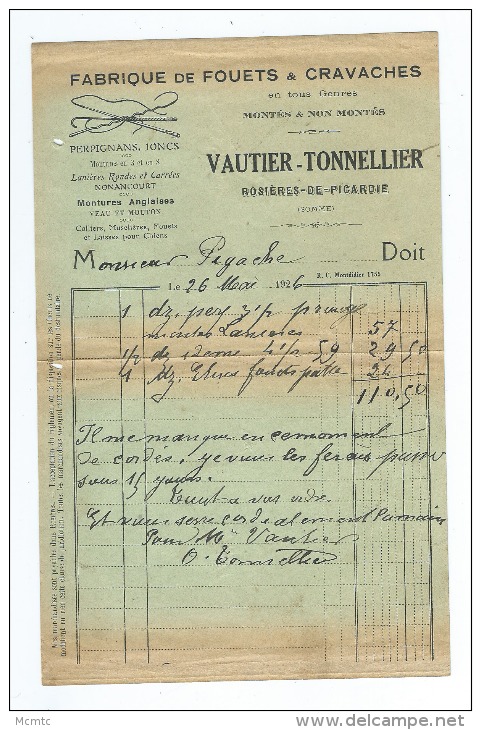 FABRIQUE DE FOUETS & CRAVACHES
en tous Genres
MONTÉS & NON MONTÉS
PERPIGNANS, JONCS
Lanières Rondes et Carrées
NONANCOURT
Montures Anglaises
VEAU ET MOUTON
Colliers, Muselières, Fouets
et Laisses pour Chiens
VAUTIER-TONNELLIER
ROSIÈRES-DE-PICARDIE
(SOMME)
Monsieur Pigache Doit
R. C. Montdidier 1755
Le 26 Mai 1926
1 dz
57
1/2 dz idem 59 29 50
1 dz 24
110,50
Il me manque en ce moment
de cordes, je vous les ferais
sous 15 jours.
Tout a vos
Et vous serre cordialement la main
Pour Mr Vautier
O. Tonnellier
Mcmtc
www.delcampe.net